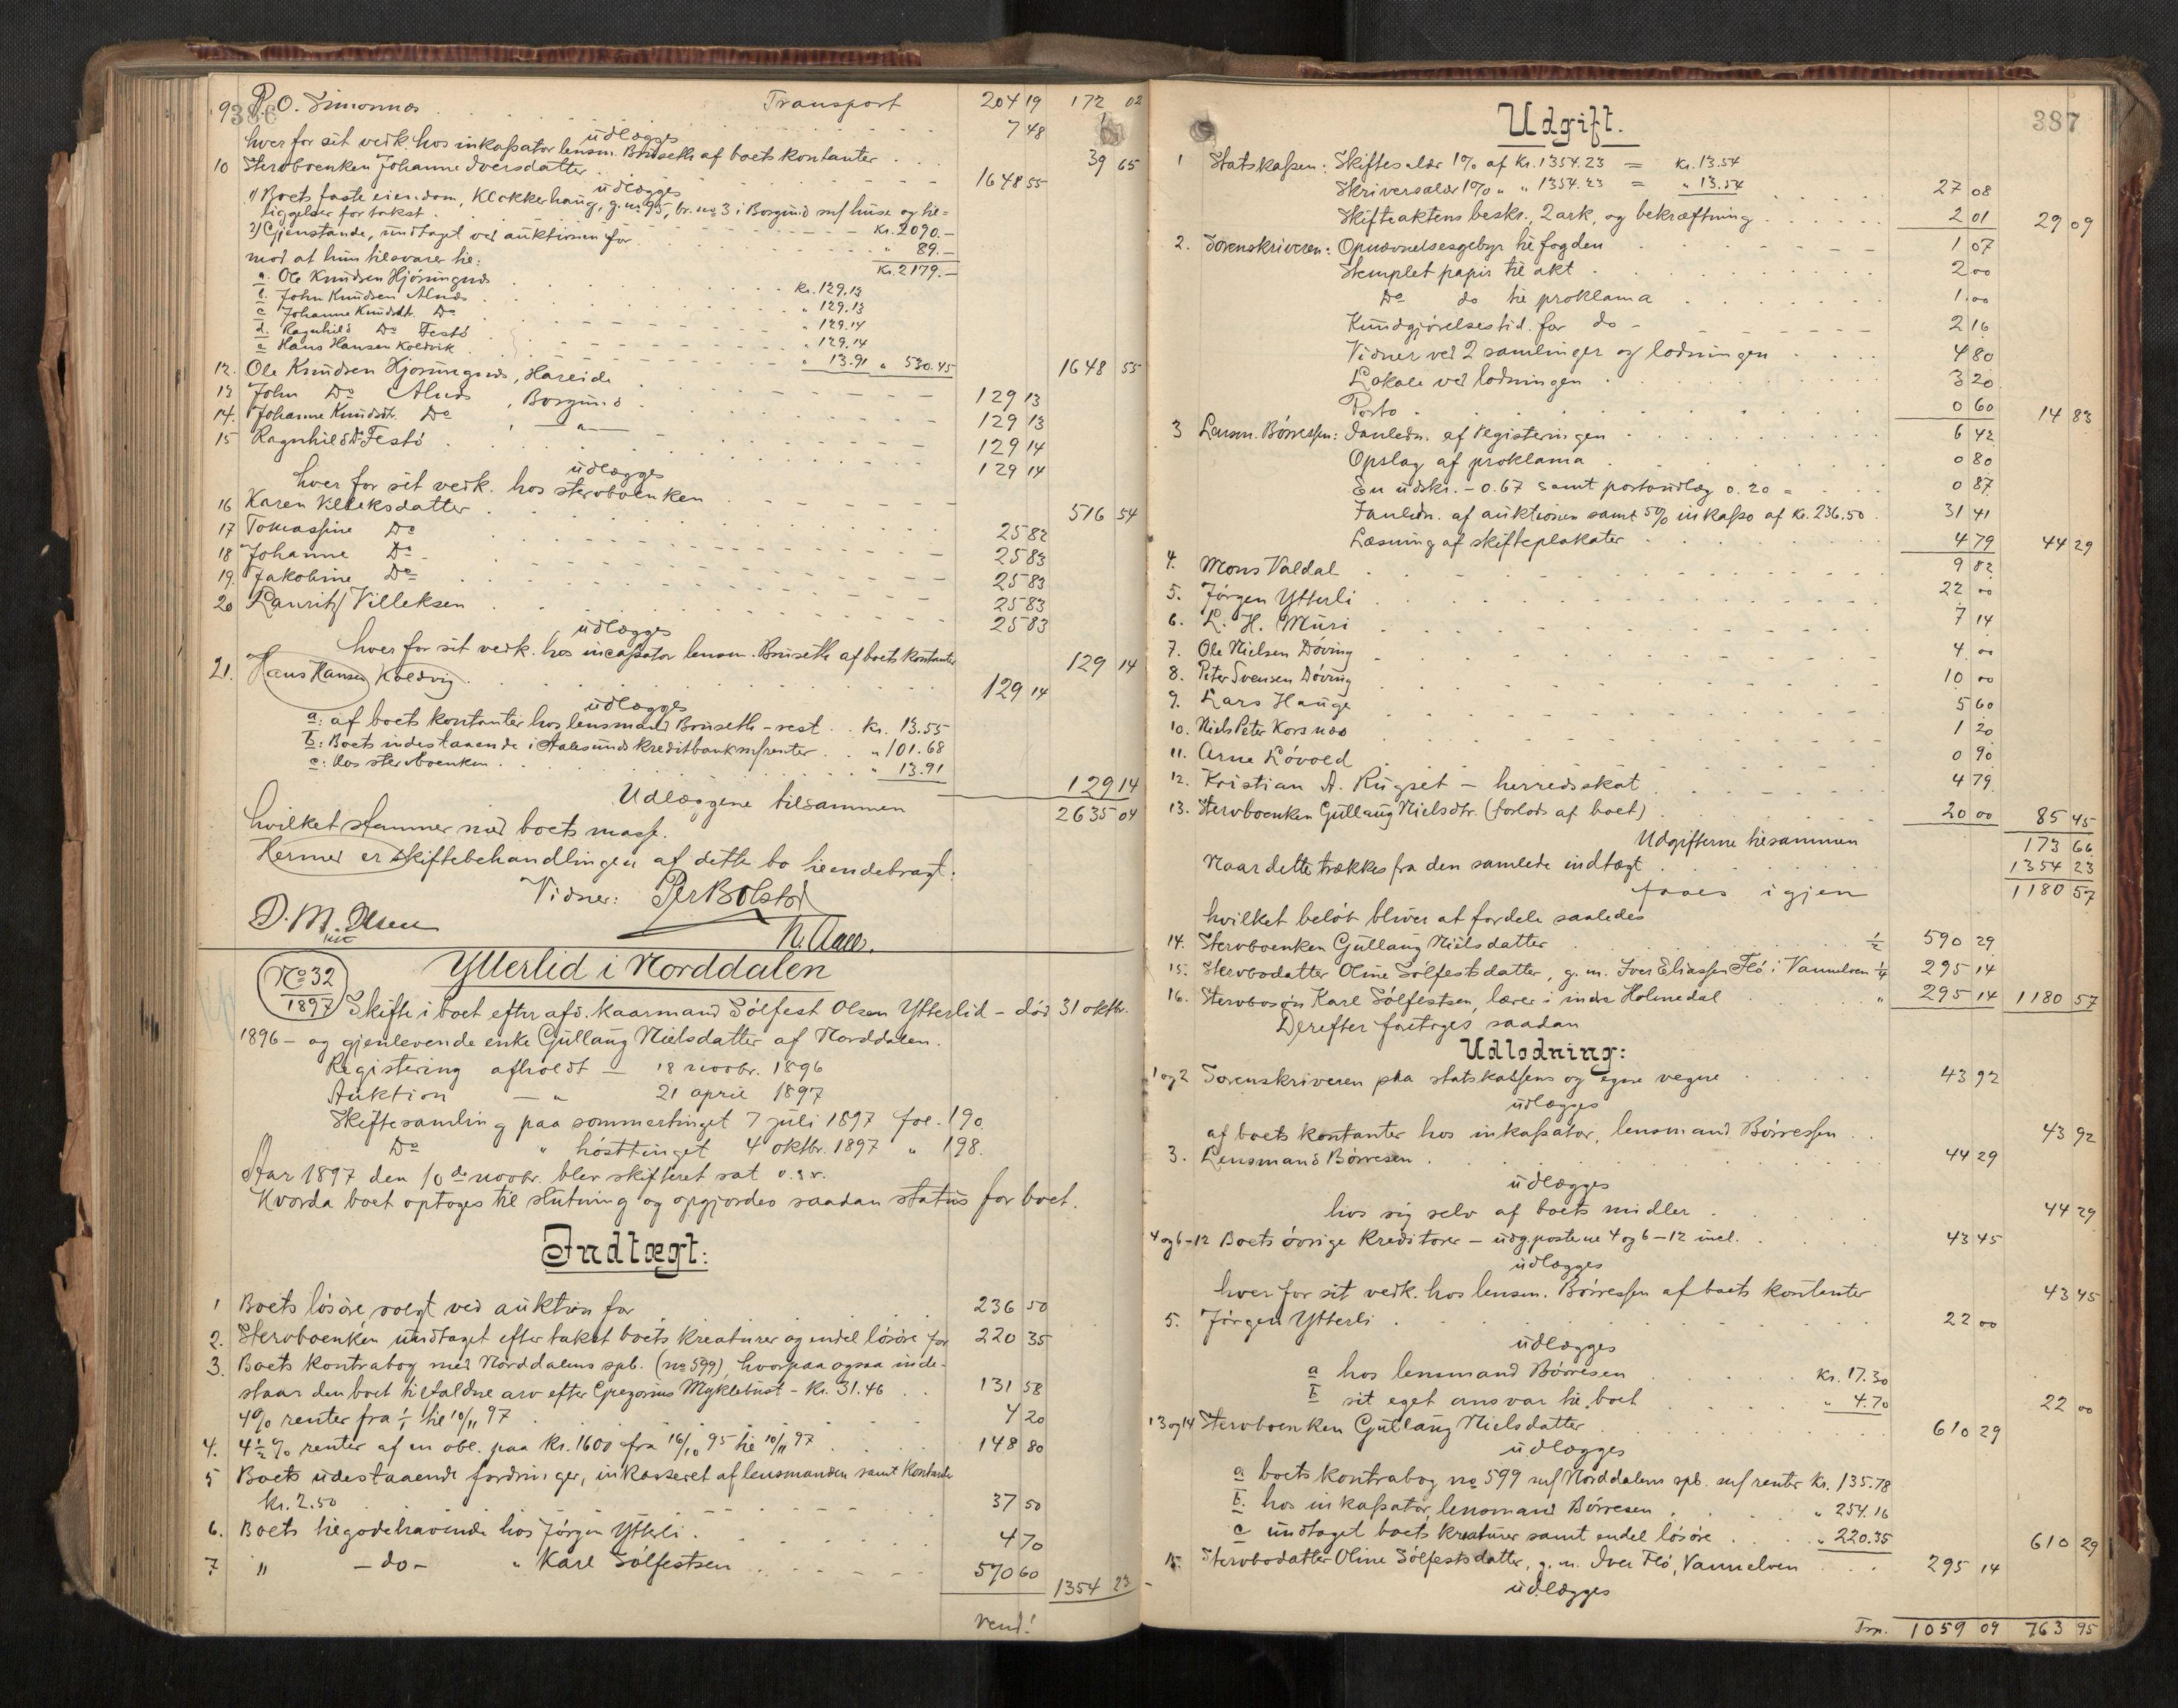 386
Transport 204 19 172 02
9 P. O. Simonnæs 7 48
udlægges
hver for sit vedk. hos inkassator lensm. Bruseth af boets kontanter 39 65
10 Stervboenken Johanne Iversdatter 1648 55
udlægges
1) Boets faste eiendom, Klokkerhaug, g. no 95, br. no 3 i Borgund m/ huse og til-
liggelser for takst kr. 2090.-
2) Gjenstande, undtaget ved auktionen for " 89.-
kr. 2179.-
mod at hun tilsvarer til:
a. Ole Knudsen Hjørungnæs kr. 129.13
b. John Knudsen Alnæs " 129.13
c Johanne Knudsdt. Do " 129.14
d. Ragnhild Do Festø " 129.14
e Hans Hansen Koldvik " 13.91 " 530.45 1648 55
12. Ole Knudsen Hjørungnæs, Hareide 129 13
13 John Do Alnæs, Borgund 129 13
14. Johanne Knudsdt. Do 129 14
15 Ragnhild Do Festø 129 14
udlægges
hver for sit vedk. hos stervboenken 516 54
16 Karen Villeksdatter 25 82
17 Tomassine Do 25 83
18 Johanne Do 25 83
19. Jakobine Do 25 83
20 Lauritz Villeksen 25 83
udlægges
hver for sit vedk. hos incassator lensm. Bruseth af boets kontanter 129 14
21. Hans Hansen Koldvig 129 14
udlægges
a: af boets kontanter hos lensmand Bruseth - rest kr. 13.55
b: Boets indestaaende i Aalesunds kreditbank m/ renter " 101.68
c: Hos stervboenken " 13.91
129 14
Udlæggene tilsammen 2635 04
hvilket stemmer med boets masse.
Hermed er skiftebehandlingen af dette bo tilendebragt.
Vidner: Per Bolstad
D. M. Olsen
N. Aall.
No 32
1897
Ytterlid i Norddalen
Skifte i boet efter afd. kaarmand Sølfest Olsen Ytterlid - død 31 oktbr.
1896 - og gjenlevende enke Gullaug Nielsdatter af Norddalen.
Registering afholdt - 18 novbr. 1896
Auktion - " 21 april 1897
Skiftesamling paa sommertinget 7 juli 1897 fol. 190.
Do " høsttinget 4 oktbr. 1897 " 198.
Aar 1897 den 10de novbr. blev skifteret sat o.s.v.
Hvorda boet optoges til slutning og opgjordes saadan status for boet.
Indtægt:
1 Boets løsøre solgt ved auktion for 236 50
2. Stervboenken undtaget efter takst boets kreaturer og endel løsøre for 220 35
3. Boets kontrabog med Norddalens spb. (no 599), hvorpaa ogsaa inde-
staar den boet tilfaldne arv efter Gregorius Myklebust - kr. 31.46 131 58
4% renter fra 1/1 til 10/11 97 4 20
4. 4½% renter af en obl. paa kr. 1600 fra 16/10 95 til 10/11 97 148 80
5 Boets udestaaende fordringer, inkasseret af lensmanden samt kontant
kr. 2.50 37 50
6. Boets tilgodehavende hos Jørgen Ytterli 4 70
7 " - do - " Karl Sølfestsen 570 60 1354 23
Vend!
387
Udgift.
1 Statskassen: Skiftesalær 1% af kr. 1354.23 = kr. 13.54
Skriversalær 1% " " 1354.23 = " 13.54 27 08
Skifteaktens beskr., 2 ark, og bekræftning 2 01 29 09
2. Sorenskriveren: Opnævnelsesgebyr til fogden 1 07
Stemplet papir til akt 2 00
Do do til proklama 1 00
Kundgjørelsestid. for do - 2 16
Vidner ved 2 samlinger og lodningen 4 80
Lokale ved lodningen 3 20
Porto 0 60 14 83
3 Lensm. Børressen: Janledn. af registeringen 6 42
Opslag af proklama 0 80
En udskr. - 0.67 samt portoudlæg 0.20 = 0 87
Janledn. af auktionen samt 5% inkasso af kr. 236.50 31 41
Læsning af skifteplakater 4 79 44 29
4. Mons Valdal 9 82
5. Jørgen Ytterli 22 00
6. L. H. Muri 7 14
7. Ole Nielsen Døving 4 00
8. Peter Svensen Døving 10 00
9. Lars Hauge 5 60
10. Niels Peter Korsnæs 1 20
11. Arne Løvold 0 90
12. Kristian A. Rugset - herredsskat 4 79
13. Stervboenken Gullaug Nielsdtr. (forlods af boet) 20 00 85 45
Udgifterne tilsammen 173 66
Naar dette trækkes fra den samlede indtægt 1354 23
faaes igjen 1180 57
hvilket beløb bliver at fordele saaledes
14. Stervboenken Gullaug Nielsdatter ½ 590 29
15. Stervbodatter Oline Sølfestsdatter, g. m. Iver Eliassen Flø i Vannelven ¼ 295 14
16. Stervbosøn Karl Sølfestsen, lærer i indre Holmedal " 295 14 1180 57
Derefter foretoges saadan
Udlodning:
1 og 2 Sorenskriveren paa statskassens og egne vegne 43 92
udlægges
af boets kontanter hos inkassator, lensmand Børressen 43 92
3. Lensmand Børresen 44 29
udlægges
hos sig selv af boets midler 44 29
4 og 6-12 Boets øvrige kreditorer - udg. posterne 4 og 6-12 incl. 43 45
udlægges
hver for sit vedk. hos lensm. Børressen af boets kontanter 43 45
5. Jørgen Ytterli 22 00
udlægges
a hos lensmand Børresen kr. 17.30
b sit eget ansvar til boet " 4.70 22 00
13 og 14 Stervboenken Gullaug Nielsdatter 610 29
udlægges
a boets kontrabog no 599 m/ Norddalens spb. m/ renter kr. 135.78
b. hos inkassator, lensmand Børresen " 254.16
c undtaget boets kreaturer samt endel løsøre " 220.35 610 29
15. Stervbodatter Oline Sølfestsdatter, g. m. Iver Flø, Vannelven 295 14
udlægges
Trp. 1059 09 763 95